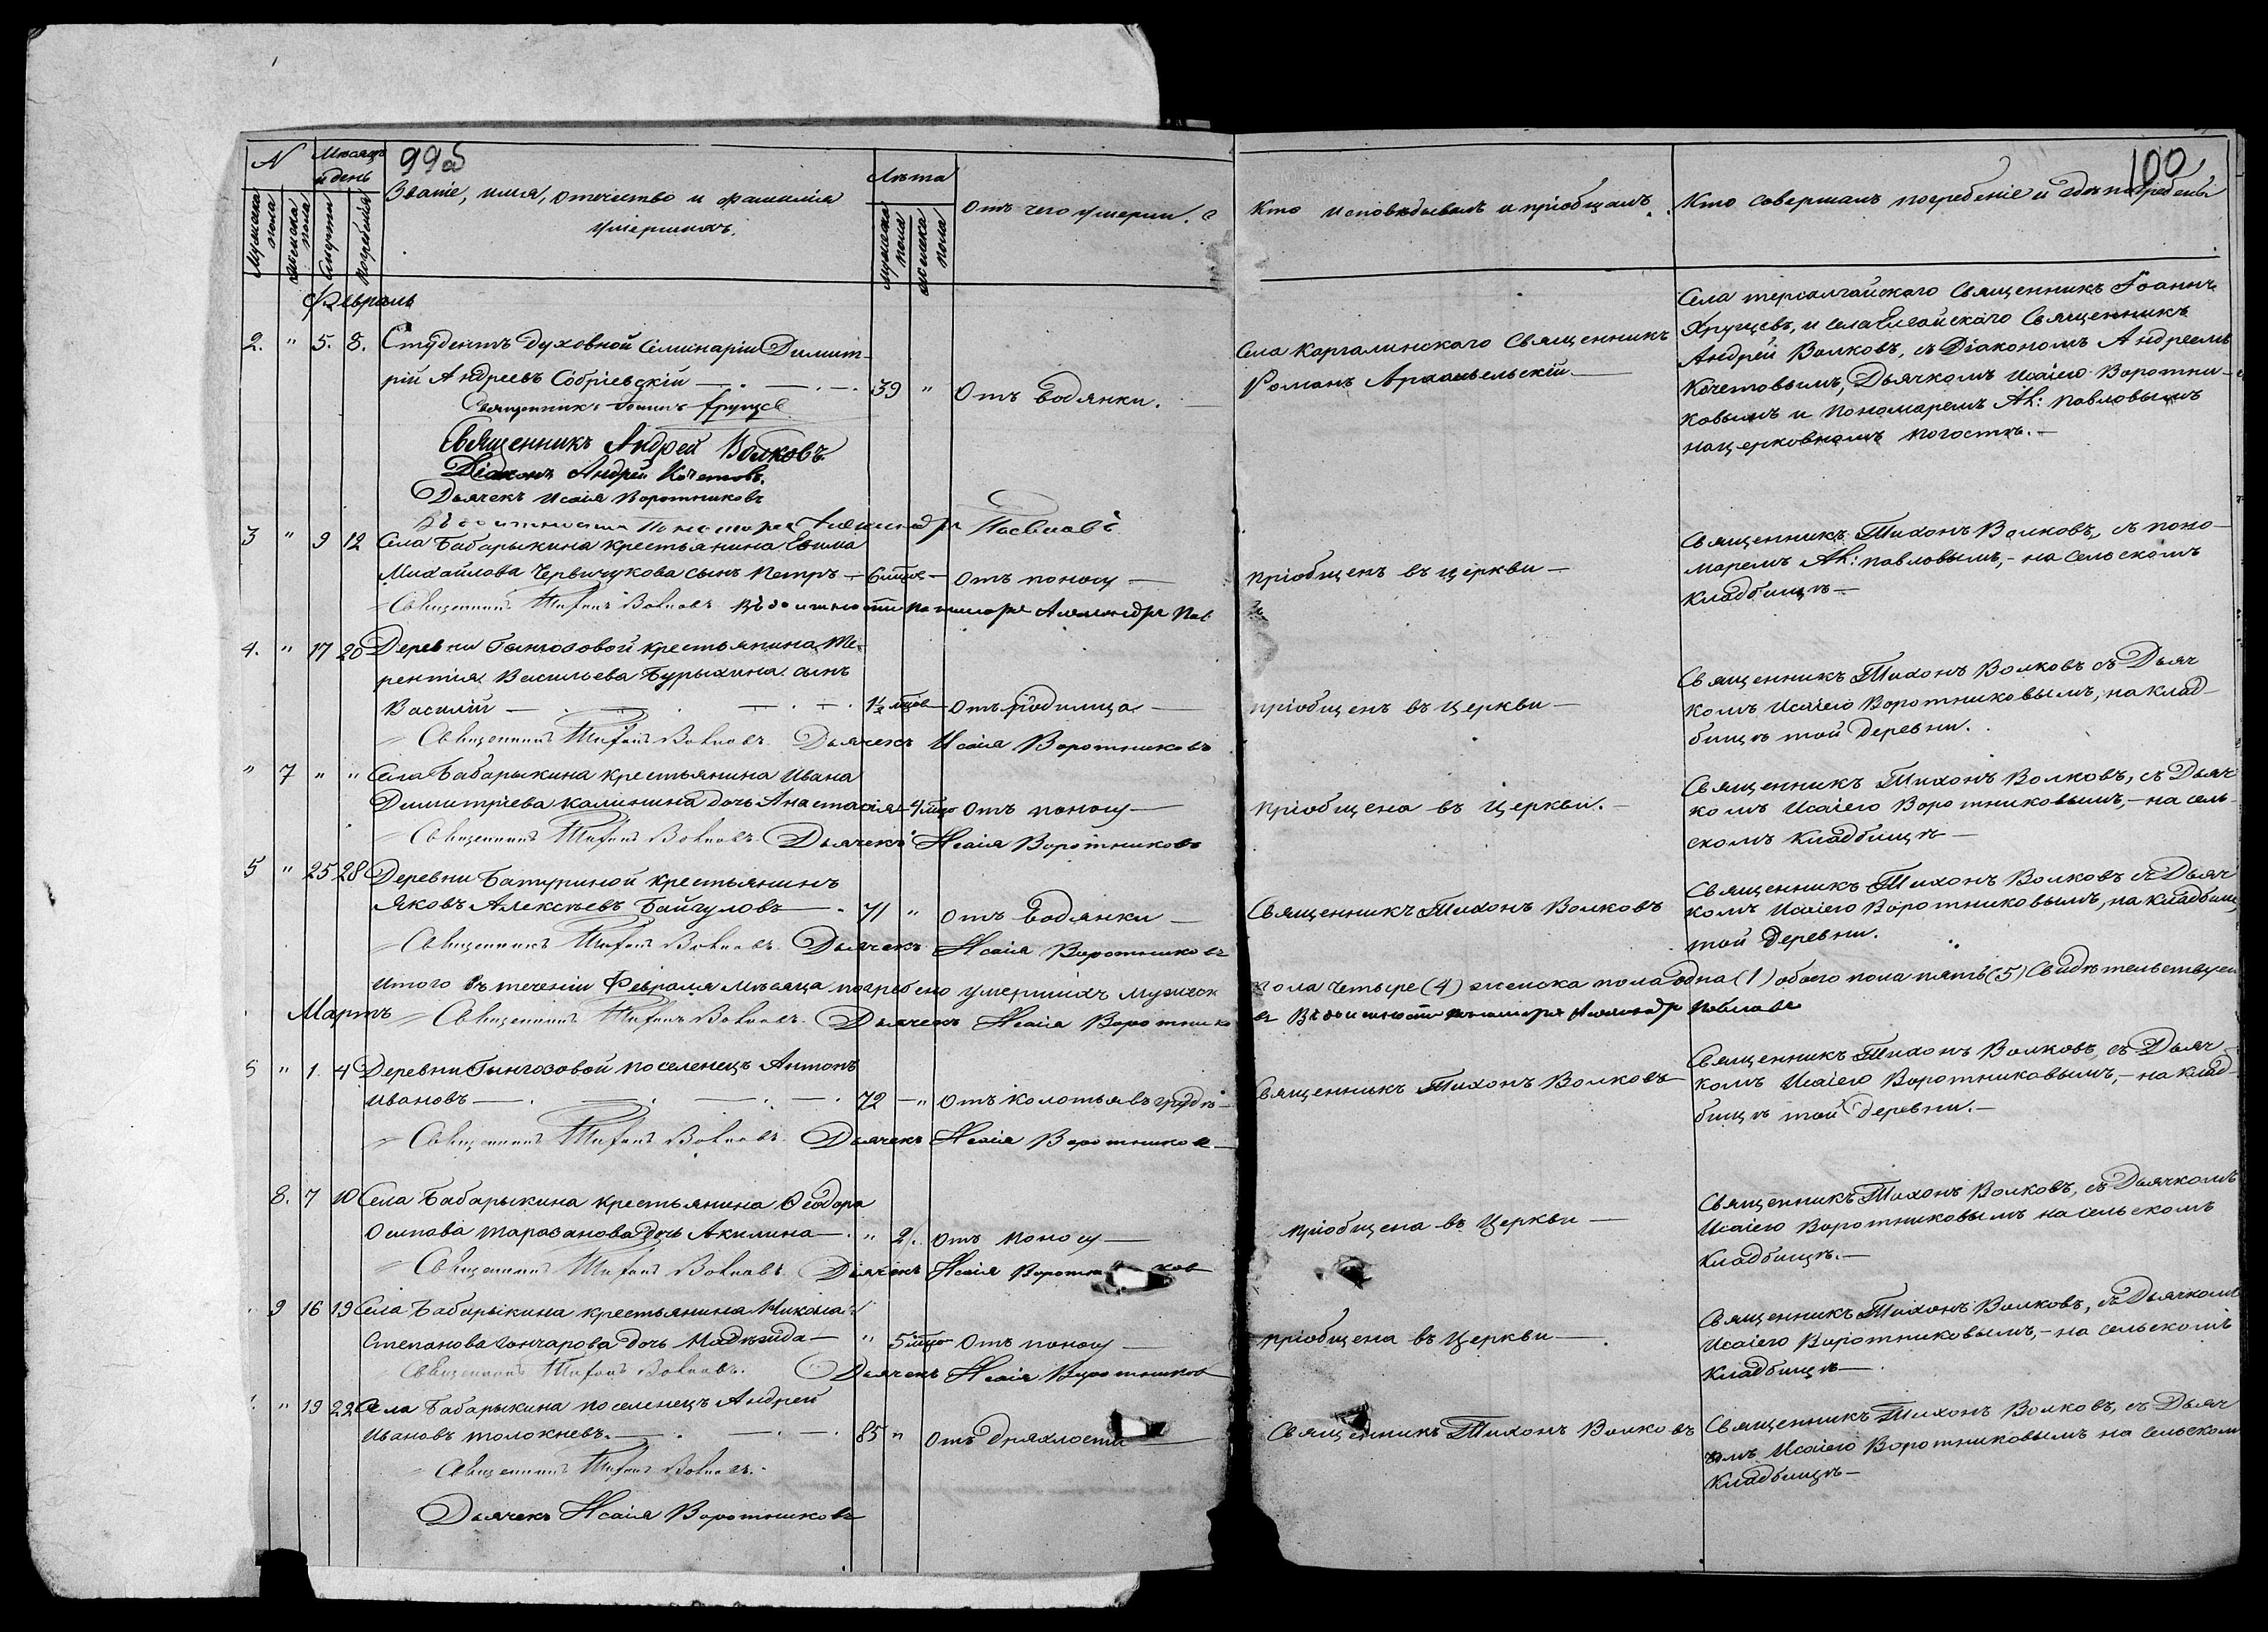 99об
100
N
Мѣсяцъ
и день
Мужска
пола
Женска
пола
Смерти
Погребенія
Званіе, имя, отечество и фамилія
умершихъ.
Лѣта
мужска
пола
женска
пола
Отъ чего умерли.
Кто исповѣдывалъ и пріобщалъ.
Кто совершалъ погребеніе и гдѣ погребены
Февраль
2. " 5. 8. Студентъ духовной Семинаріи Димит-
рій Андреевъ 39 " Отъ водянки.
Священникъ
Священникъ Андрей Волковъ.
Діаконъ Андрей Кочетовъ.
Дьячекъ Исаія Воротниковъ
Въ должности Пономаря Александръ Павловъ
Села Каргалинскаго Священникъ
Романъ Архангельскій.
Села Священникъ Іоаннъ
Хрущевъ, и села Священникъ
Андрей Волковъ, съ Діакономъ Андреемъ
Кочетовымъ, Дьячкомъ Исаіею Воротни-
ковымъ и Пономаремъ Ал: Павловымъ
на церковномъ погостѣ.
3 " 9 12 Села Бабарыкина крестьянина Ефима
Михайлова сынъ Петръ 6 мцов Отъ поносу
Священникъ Тихонъ Волковъ. Въ должности пономаря Александръ Пав
пріобщенъ въ церкви
Священникъ Тихонъ Волковъ, съ поно-
маремъ Ал: Павловымъ, на сельскомъ
кладбищѣ
4. " 17 20 Деревни Гынгозовой крестьянина Те-
рентія Васильева Бурыхина сынъ
Василій 1½ мцов Отъ родимца
Священникъ Тихонъ Волковъ. Дьячекъ Исаія Воротниковъ
пріобщенъ въ церкви
Священникъ Тихонъ Волковъ съ Дьяч
комъ Исаіею Воротниковымъ, на клад-
бищѣ той деревни.
" 7 " " Села Бабарыкина крестьянина Ивана
Димитріева Калинина дочь Анастасія 4 мцов Отъ поносу
Священникъ Тихонъ Волковъ. Дьячекъ Исаія Воротниковъ
пріобщена въ церкви.
Священникъ Тихонъ Волковъ, съ Дьяч
комъ Исаіею Воротниковымъ, на сель-
скомъ кладбищѣ
5 " 25 28 Деревни Батуриной крестьянинъ
Яковъ Алексѣевъ Байгуловъ 71 " Отъ водянки
Священникъ Тихонъ Волковъ. Дьячекъ Исаія Воротниковъ
Священникъ Тихонъ Волковъ
Священникъ Тихонъ Волковъ съ Дьяч
комъ Исаіею Воротниковымъ, на кладбищѣ
той деревни.
Итого въ теченіи Февраля мѣсяца погребено умершихъ мужеск
пола четыре (4) женска пола одна (1) обоего пола пять (5) Свидѣтельствуем
Священникъ Тихонъ Волковъ. Дьячекъ Исаія Воротнико
въ Въ должности пономаря Александръ Павловъ
Мартъ
" 1. 4 Деревни Гынгозовой поселенецъ Антонъ
Ивановъ 72 " Отъ колотья въ груди
Священникъ Тихонъ Волковъ. Дьячекъ Исаія Воротников
Священникъ Тихонъ Волковъ
Священникъ Тихонъ Волковъ, съ Дьяч
комъ Исаіею Воротниковымъ, на клад-
бищѣ той деревни.
8. 7 10 Села Бабарыкина крестьянина Ѳеодора
Осипова дочь Акилина " 2. Отъ поносу
Священникъ Тихонъ Волковъ. Дьячекъ Исаія Воротн ков
пріобщена въ церкви
Священникъ Тихонъ Волковъ, съ Дьячкомъ
Исаіею Воротниковымъ на сельскомъ
кладбищѣ.
9 16 19 Села Бабарыкина крестьянина Никола
Степанова Гончарова дочь Надежда " 5 мцов Отъ поносу
Священникъ Тихонъ Волковъ. Дьячекъ Исаія Воротников
пріобщена въ церкви
Священникъ Тихонъ Волковъ, съ Дьячкомъ
Исаіею Воротниковымъ, на сельскомъ
кладбищѣ
" 19 22 Села Бабарыкина поселенецъ Андрей
Ивановъ Толокневъ. 85 " Отъ дряхлости
Священникъ Тихонъ Волковъ.
Дьячекъ Исаія Воротниковъ
Священникъ Тихонъ Волковъ
Священникъ Тихонъ Волковъ, съ Дьяч
комъ Исаіею Воротниковымъ на сельском
кладбищѣ